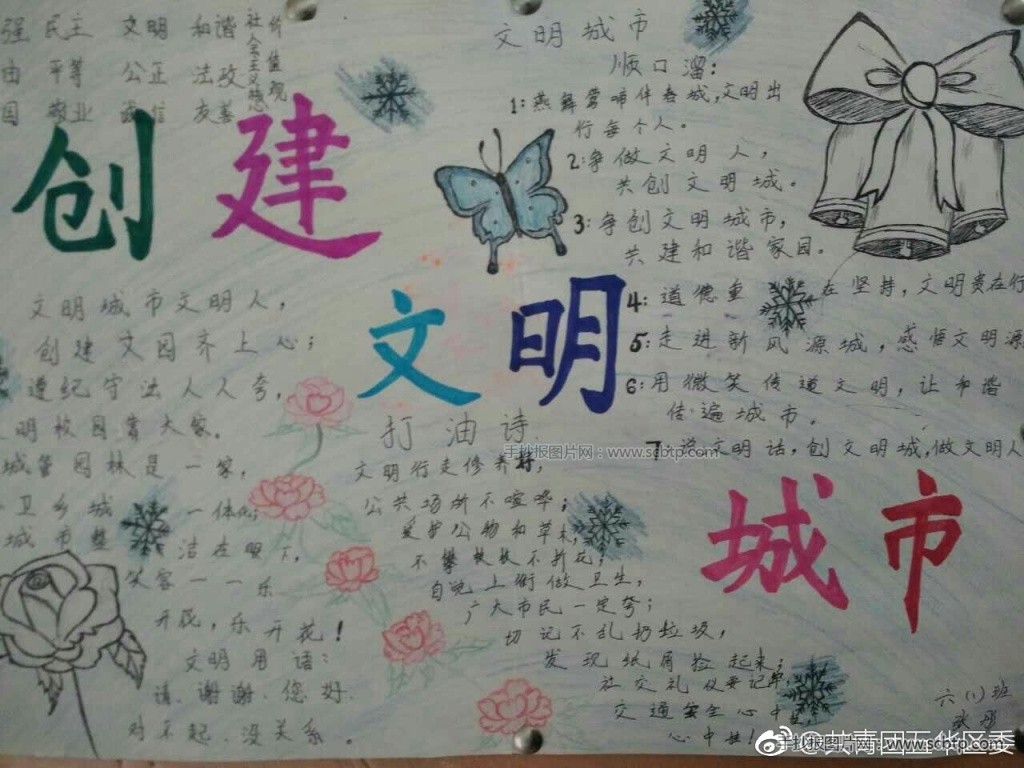 强 民主 文明 和谐
由 平等 公正 法政
国 敬业 诚信 友善
社会主义
价值观
创建
文明
城市
文明城市文明人，
创建文园齐上心；
遵纪守法人人夸，
明校园靠大家。
城管园林是一家，
卫乡城 一体化；
城市整 洁在眼下，
笑容一一乐
开花，乐开花！
文明用语：
请、谢谢、您好、
对不起、没关系。
打油诗
文明行走修养好，
公共场所不喧哗；
爱护公物和草木，
不攀枝杈不折花；
自觉上街做卫生，
广大市民一定夸；
切记不乱扔垃圾，
发现纸屑捡起来；
社交礼仪要记牢，
交通安全心中
心中
文明城市
顺口溜：
1：燕舞莺啼伴春城，文明出
行每个人。
2：争做文明人，
共创文明城。
3：争创文明城市，
共建和谐家园。
4：道德重 在坚持，文明贵在行
5：走进新风源城，感悟文明源
6：用微笑传递文明，让和谐
传遍城市。
7：说文明话，创文明城，做文明人
六（1）班
手抄报图片网：www.scbrtp.com
手抄报图片网：www.scbrtp.com
@共青团五华区委